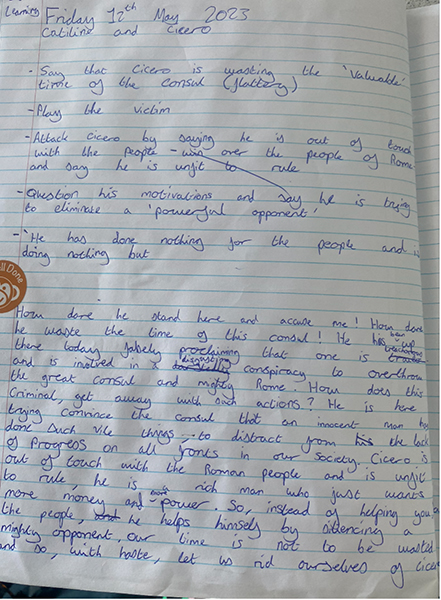 Learning Friday 12th May 2023
Catiline and Cicero
- Say that Cicero is wasting the 'valuable'
time of the consul (flattery)
- Play the victim
- Attack Cicero by saying he is out of touch
with the people - win over the people of Rome
and say he is unfit to rule
- Question his motivations and say he is trying
to eliminate a 'powerful opponent'
- 'He has done nothing for the people and is
doing nothing but
ll Done
How dare he stand here and accuse me! How dare
he waste the time of this consul! He has been up
there today falsely proclaiming that one is treacherous
and is involved in a disgusting conspiracy to overthrow
the great consul and mighty Rome. How does this
Criminal, get away with such actions? He is here
trying convince the consul that an innocent man has
done such vile things, to distract from the lack
of Progress on all fronts in our society. Cicero is
out of touch with the Roman people and is unfit
to rule, he is rich man who just wants
more money and power. So, instead of helping you,
the people, he helps himself by silencing a
mighty opponent. our time is not to be wasted
and so, with haste, let us rid ourselves of Cicero